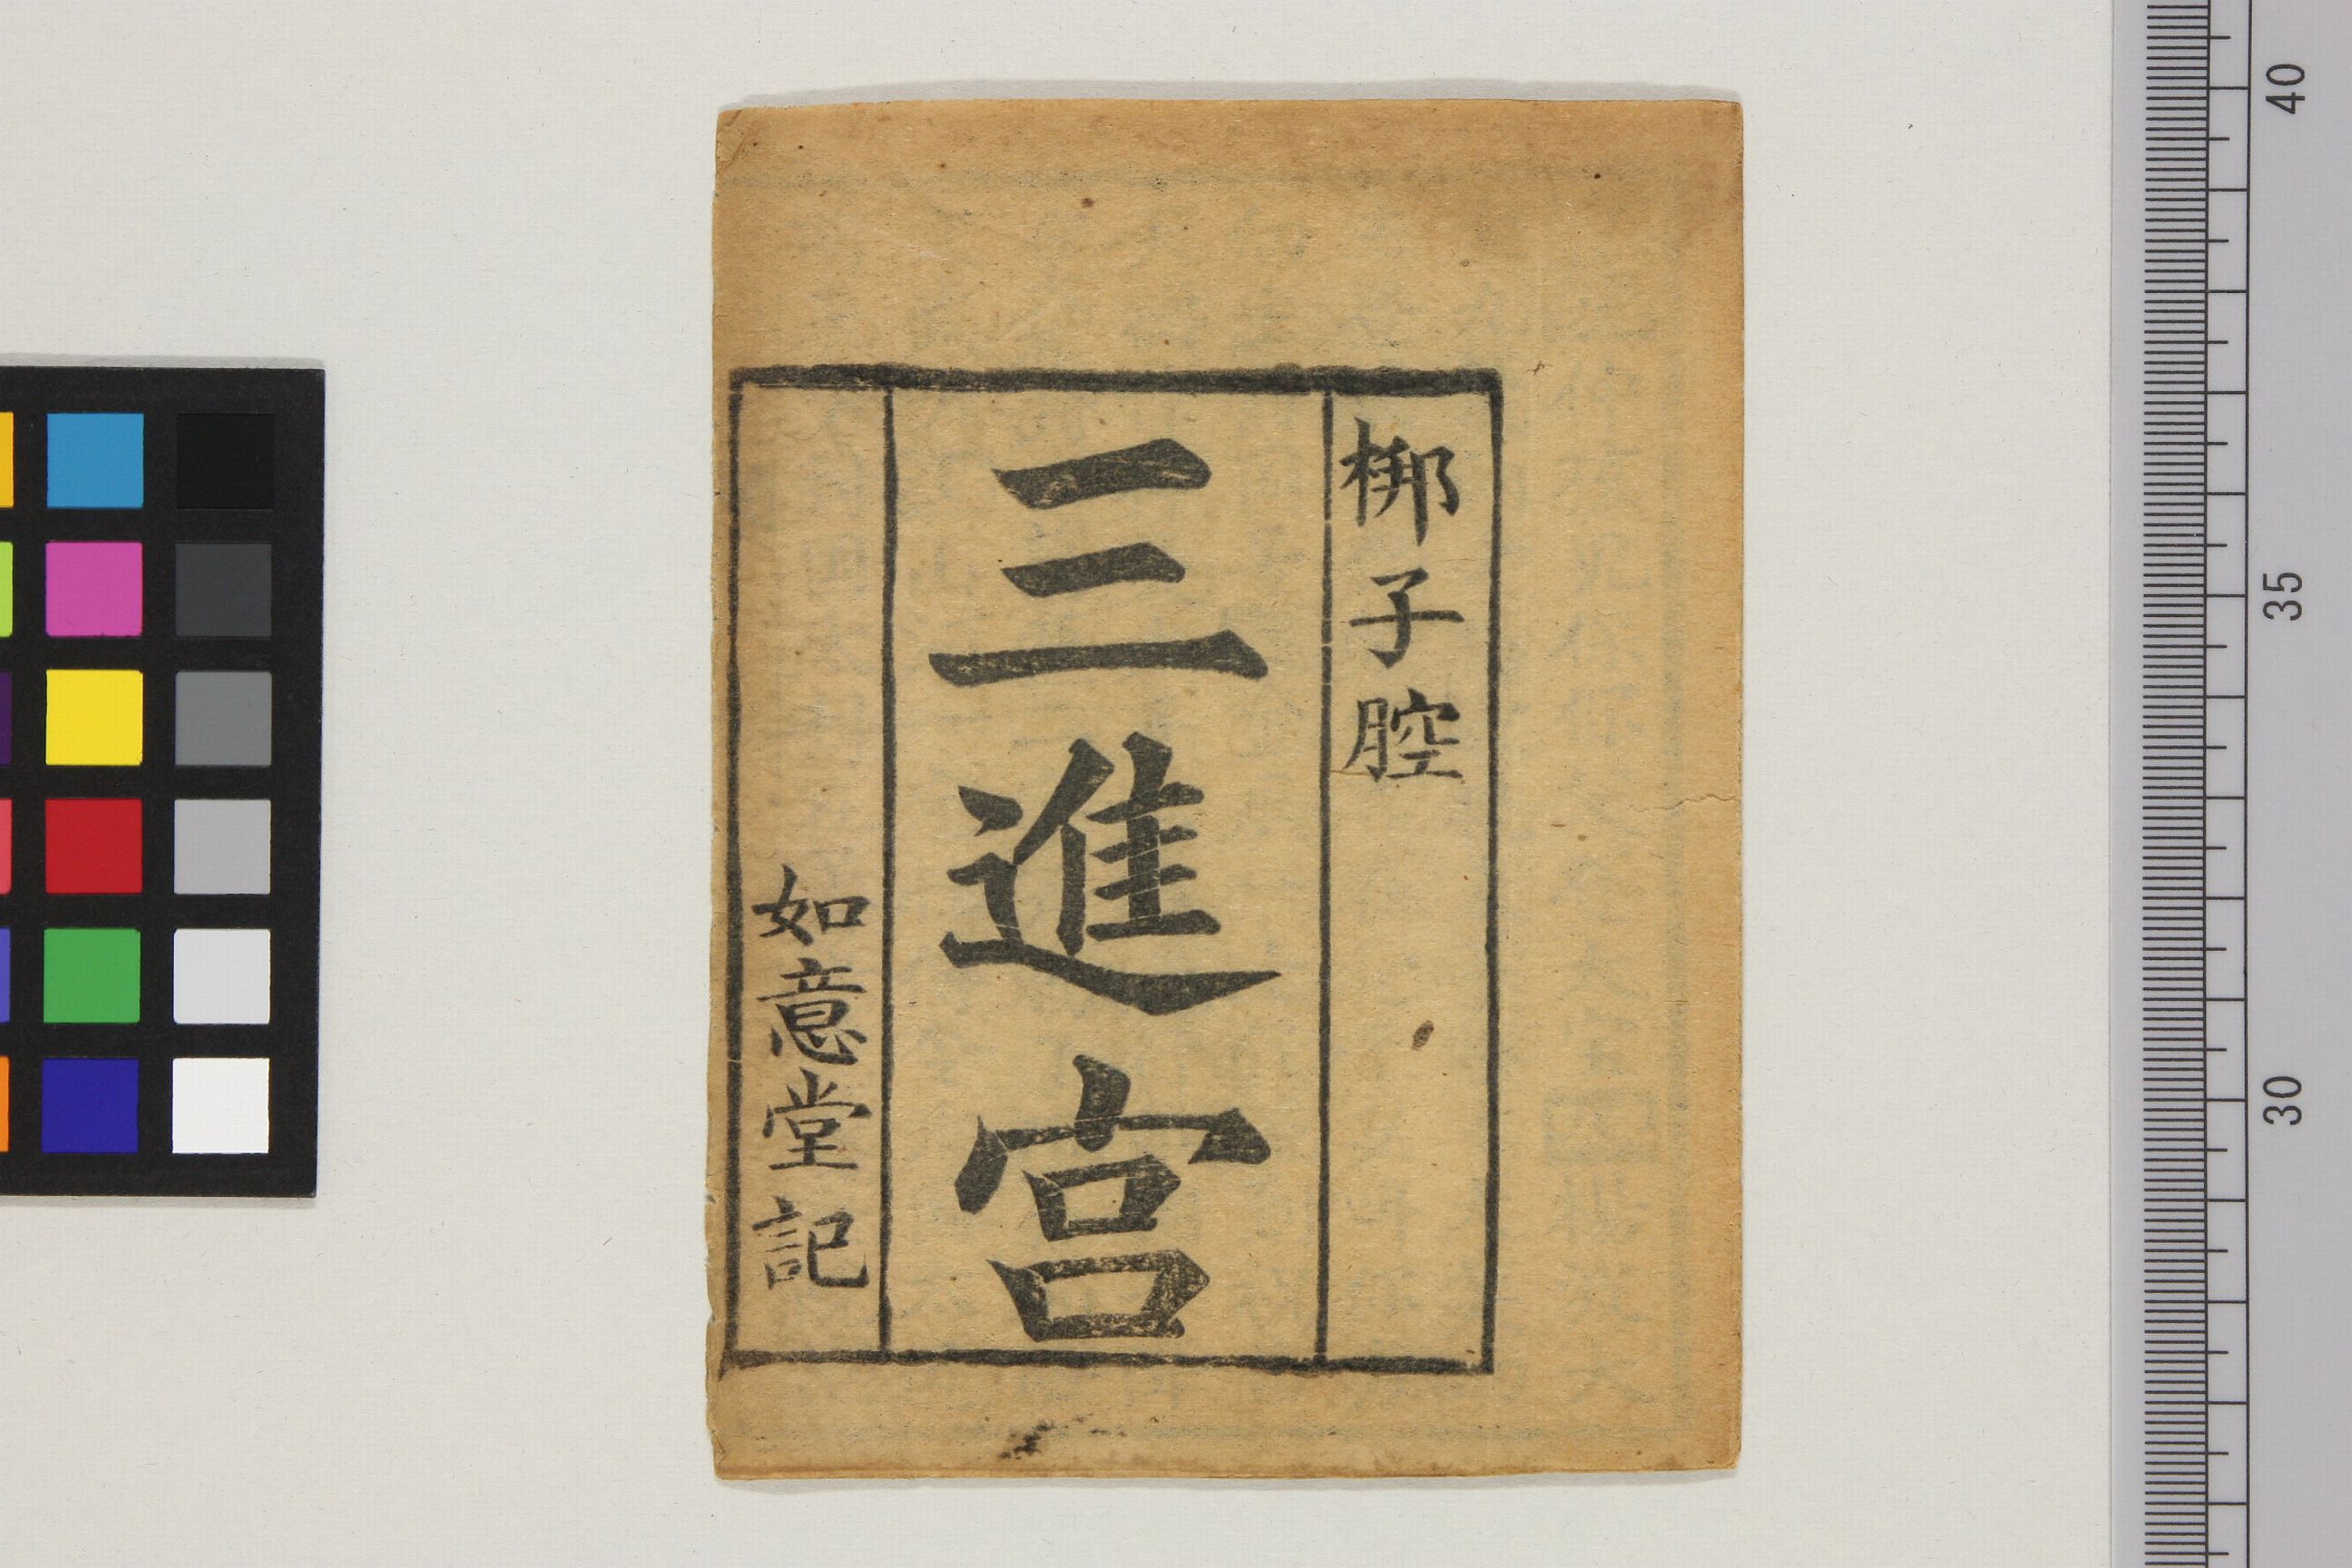 梆子腔
三進宮
如意堂記
40
35
30